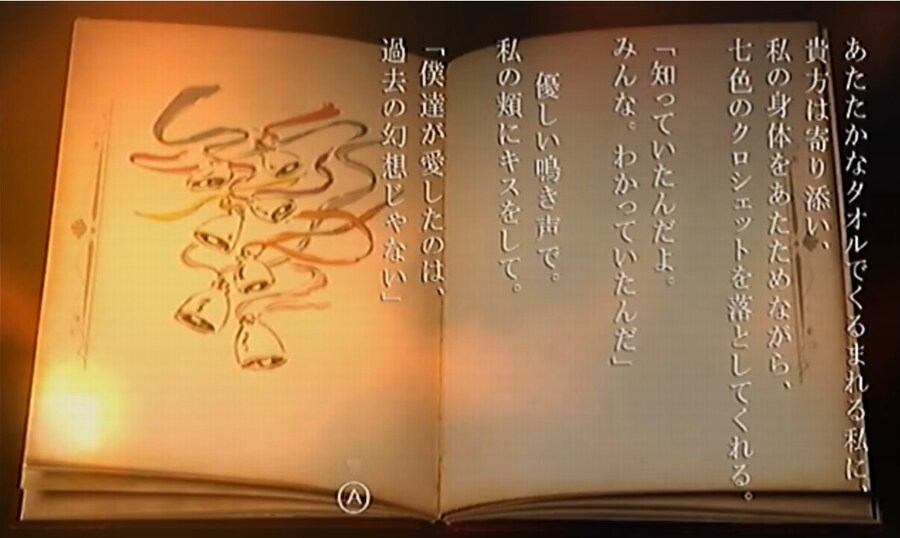 あたたかなタオルでくるまれる私に、
貴方は寄り添い、
私の身体をあたためながら、
七色のクロシェットを落としてくれる。
「知っていたんだよ。
みんな。わかっていたんだ」
優しい鳴き声で。
私の頬にキスをして。
「僕達が愛したのは、
過去の幻想じゃない」
A